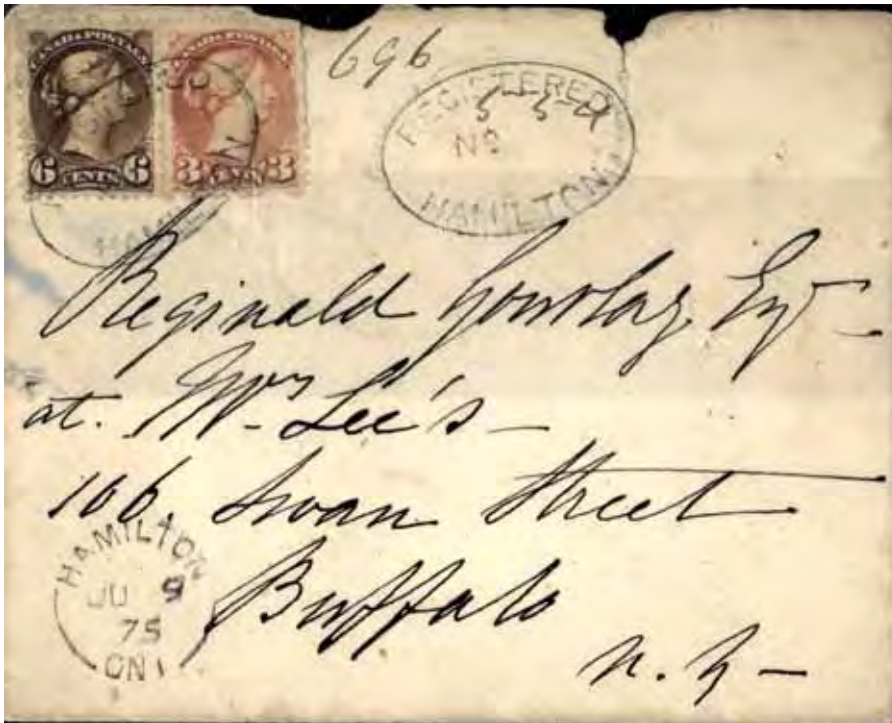 CANADA POSTAGE CANADA POSTAGE
6 CENTS 6 3 CENTS 3
696
REGISTERED
No
HAMILTON
Reginald Gourlay Esqr
at. Mrs Lee's —
106. Swan Street
Buffalo
N. Y —
HAMILTON
JU 9
75
ONT